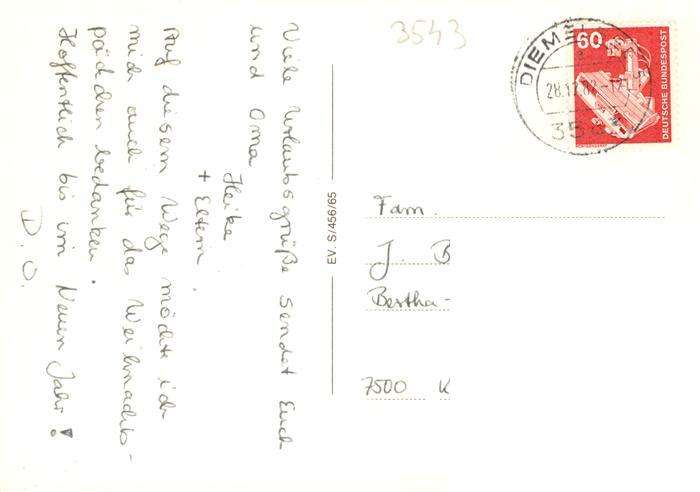 Viele Urlaubsgrüße sendet Euch
und Oma
Heike
+ Eltern.
Auf diesem Wege möchte ich
mich auch für das Weihnachts-
päckchen bedanken.
Hoffentlich bis im Neuen Jahr!
D. O.
EV. S/456/65
3543
DIEMEL
28.12.
35
60
DEUTSCHE BUNDESPOST
Fam.
J. B
Bertha-
7500 K